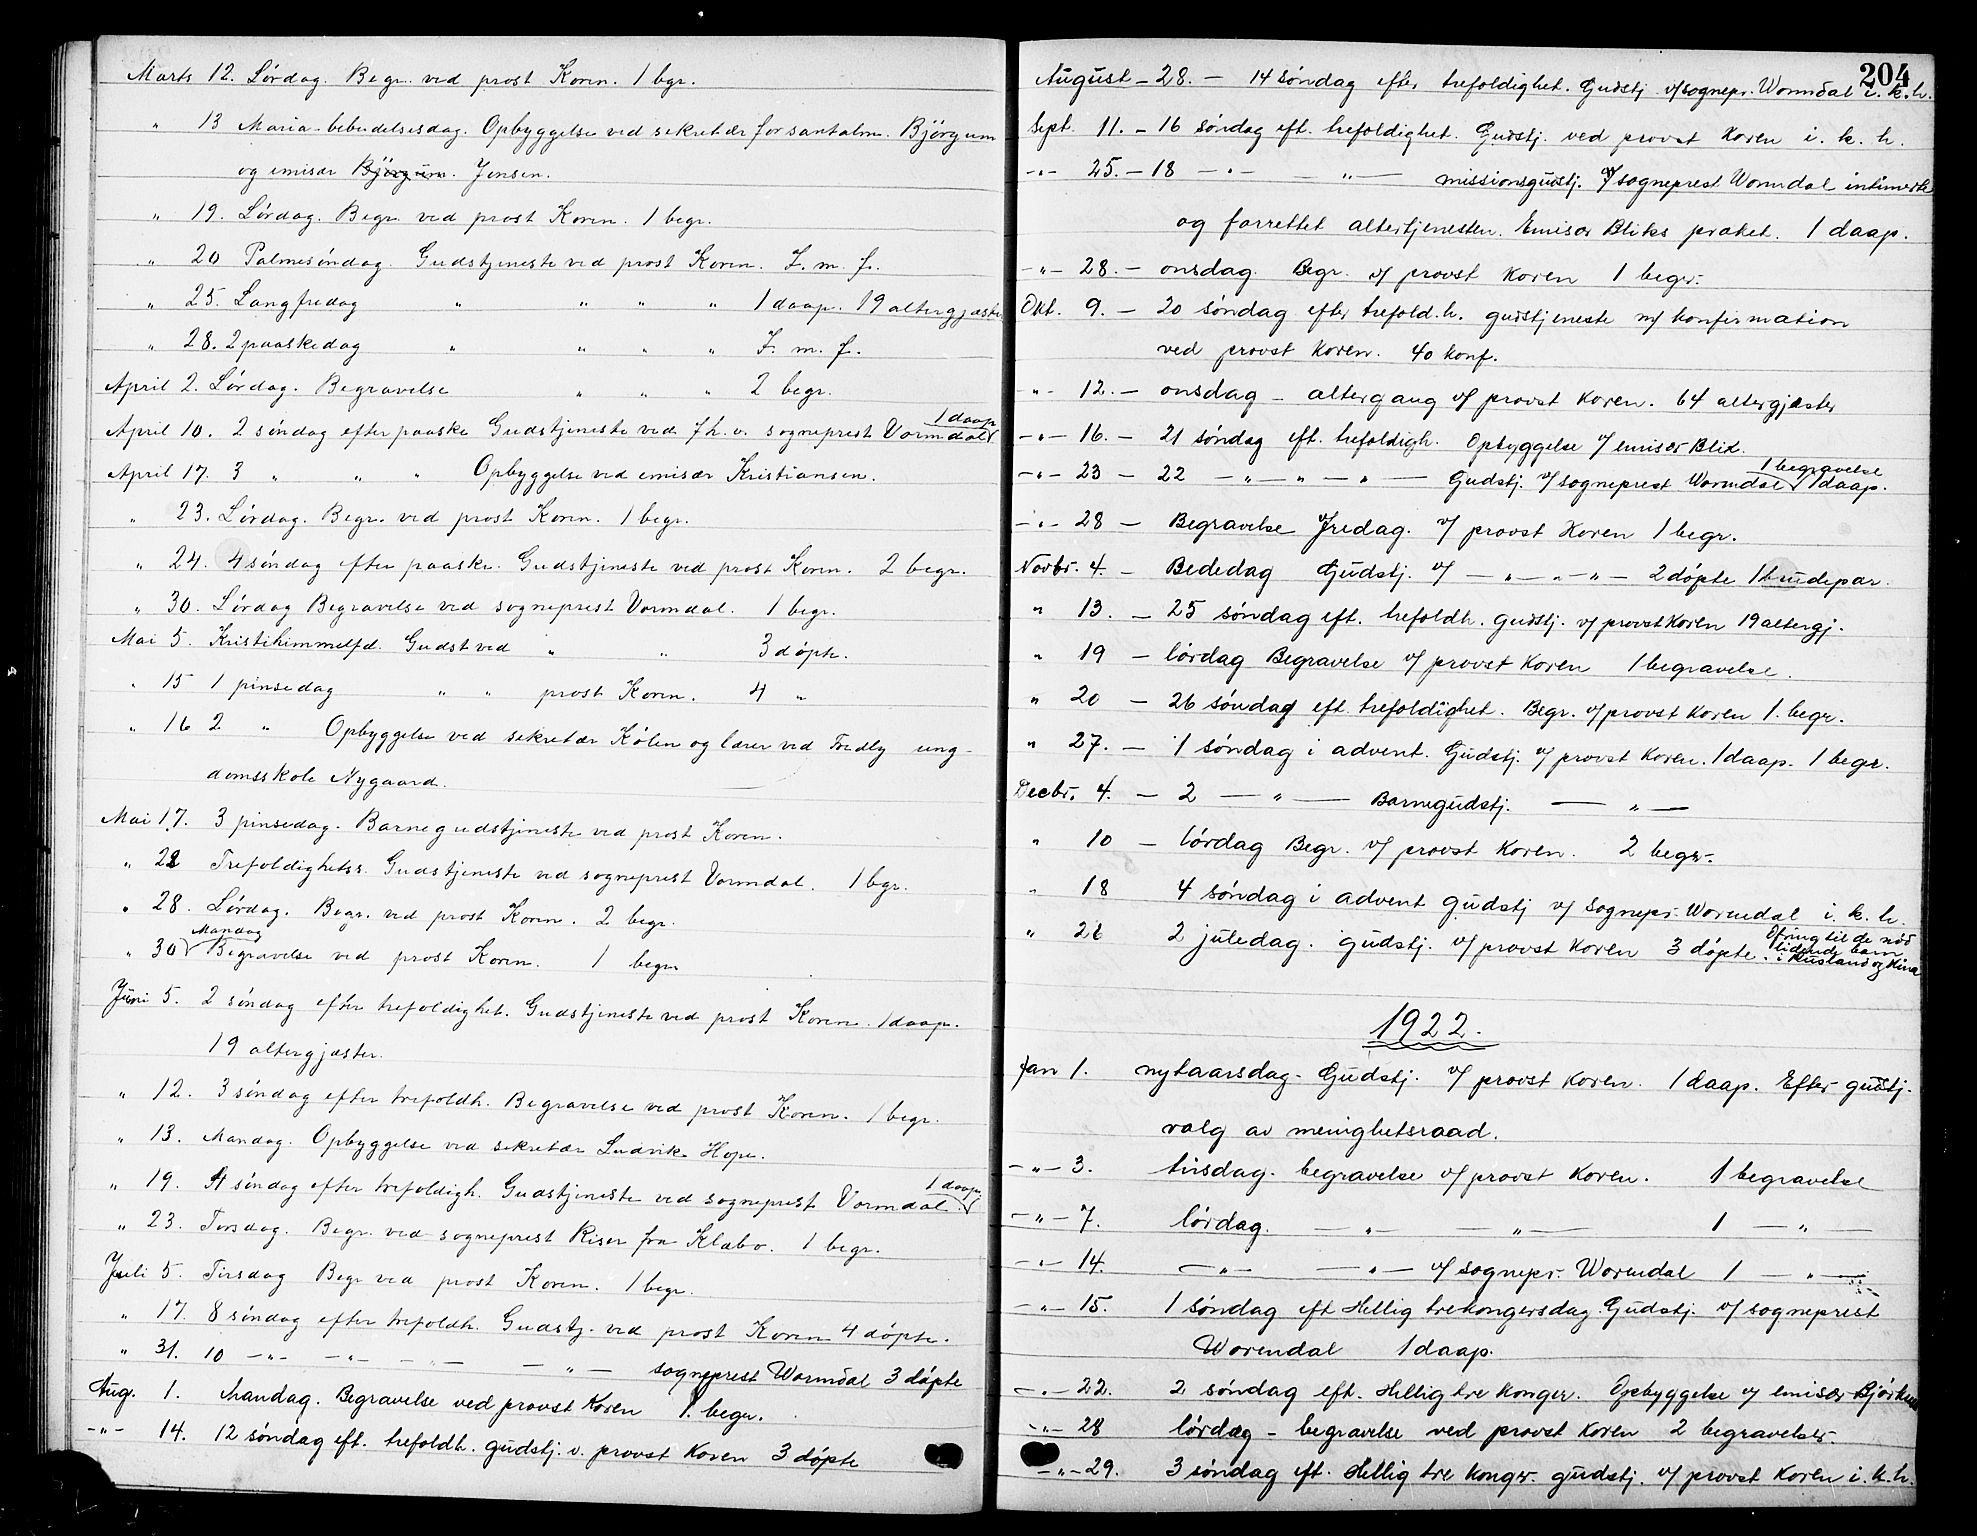 Marts 12. Lördag. Begr. ved prost Koren. 1 bgr.
" 13 Maria-bebudelsesdag. Opbyggelse ved sekretær for santalm. Björgum
og emisær Björgum. Jensen.
" 19. Lördag. Begr. ved prost Koren. 1 begr.
" 20 Palmesöndag. Gudstjeneste ved prost Koren. I. m. f.
" 25. Langfredag " " " " 1 daap. 19 altergjæster
" 28. 2 paaskedag " " " " I. m. f.
April 2. Lördag. Begravelse " " " 2 begr.
April 10. 2 söndag efter paaske Gudstjeneste ved fh.v. sogneprest Vormdal 1 daap
April 17. 3 " " " Opbyggelse ved emisær Kristiansen.
" 23. Lördag. Begr. ved prost Koren. 1 begr.
" 24. 4 söndag efter paaske. Gudstjeneste ved prost Koren. 2 begr.
" 30. Lördag Begravelse ved sogneprest Vormdal. 1 begr.
Mai 5. Kristihimmelfd. Gudst ved " " 3 döpte.
" 15 1 pinsedag " " prost Koren. 4 "
" 16 2 " Opbyggelse ved sekretær Kölen og lærer ved Fredly ung-
domsskole Nygaard.
Mai 17. 3 pinsedag. Barnegudstjeneste ved prost Koren.
" 22 Trefoldighetss. Gudstjeneste ved sogneprest Vormdal. 1 bgr.
" 28. Lördag. Begr. ved prost Koren. 2 begr.
" 30 Mandag Begravelse ved prost Koren. 1 begr
Juni 5. 2 söndag efter trefoldighet. Gudstjeneste ved prost Koren. 1 daap.
19 altergjæster.
" 12. 3 söndag efter trefoldh. Begravelse ved prost Koren. 1 begr.
" 13. Mandag. Opbyggelse ved sekretær Ludvik Hope.
" 19. 4 söndag efter trefoldigh. Gudstjeneste ved sogneprest Vormdal 1 daap.
" 23. Torsdag. Begr. ved sogneprest Riser fra Klæbo. 1 begr.
Juli 5. Tirsdag Begr ved prost Koren. 1 begr.
" 17. 8 söndag efter trefoldh. Gudstj. ved prost Koren 4 döpte.
" 31. 10 —"— —"— —"— —"— sogneprest Wormdal 3 döpte
Aug. 1. Mandag. Begravelse ved provst Koren 1. begr.
—"— 14. 12 söndag eft. trefoldh. gudstj. v. provst Koren 3 döpte
204
August — 28. — 14 söndag efter trefoldighet. Gudstj v/ sognepr. Wormdal i. k. h.
Sept. 11. — 16 söndag eft. trefoldighet. Gudstj. ved provst Koren i. k. h.
—"— 25. — 18 —"— —"— missionsgudstj. v/ sogneprest Wormdal intimerte
og forrettet altertjenesten. Emisær Bliks præket. 1 daap.
—"— 28. — onsdag. Begr. v/ provst Koren 1 begr.
Okt. 9. — 20 söndag efter trefold.h. gudstjeneste m/ konfirmation
ved provst Koren. 40 konf.
—"— 12. — onsdag — altergang v/ provst Koren. 64 altergjæster
—"— 16. — 21 söndag eft. trefoldigh. Opbyggelse v/ emisær Blik.
—"— 23 — 22 —"—"—"— Gudstj. v/ sogneprest Wormdal 1 begravelse 1 daap.
—"— 28 — Begravelse Fredag. v/ provst Koren 1 begr.
Novbr. 4. — Bededag Gudstj. v/ —"—"—"— 2 döpte 1 brudepar.
" 13. — 25 söndag eft. trefoldh. gudstj. v/ provst Koren 19 altergj.
" 19 — lördag Begravelse v/ provst Koren 1 begravelse.
" 20 — 26 söndag eft. trefoldighet. Begr. v/ provst Koren 1. begr.
" 27. — 1 söndag i advent. Gudstj. v/ provst Koren. 1 daap. 1 begr.
Decbr. 4. — 2 —"— Barnegudstj. —"—
" 10 — lördag Begr. v/ provst Koren. 2 begr.
" 18 4 söndag i advent gudstj v/ sognepr. Wormdal i. k. h.
" 26 2 juledag. gudstj. v/ provst Koren 3 döpte. Ofring til de nöd
lidende barn
i Rusland og Kina
1922.
Jan 1. nytaarsdag. Gudstj. v/ provst Koren. 1 daap. Efter gudstj.
valg av menighetsraad.
—"— 3. tirsdag. begravelse v/ provst Koren. 1 begravelse
—"— 7. lördag. —"— —"— 1 —"—
—"— 14. —"— —"— v/ sognepr. Wormdal 1 —"—
—"— 15. 1 söndag eft Hellig trekongersdag. Gudstj. v/ sogneprest
Wormdal 1 daap.
—"— 22. 2 söndag eft. Hellig tre konger. Opbyggelse v/ emisær
—"— 28 lördag — begravelse ved provst Koren 2 begravelser.
—"— 29. 3 söndag eft. Hellig tre konger. gudstj. v/ provst Koren i. k. h.